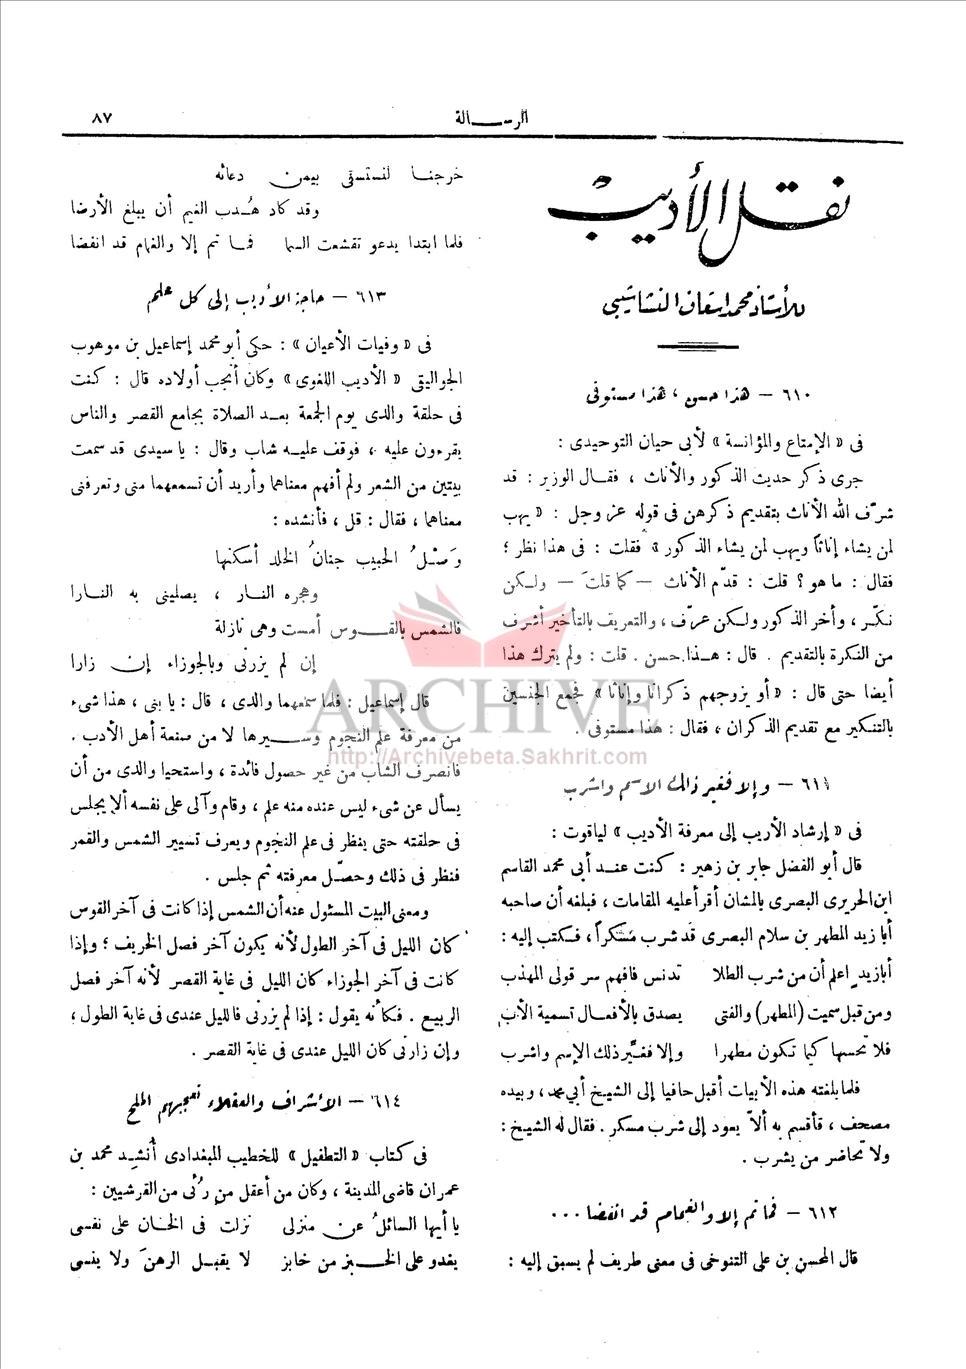 الرسالة
٨٧
نقل الأديب
للأستاذ محمد إسعاف النشاشيبي
٦١٠ – هذا حسن ، هذا مستوفى
فى « الإمتاع والمؤانسة » لأبى حيان التوحيدى :
جرى ذكر حديث الذكور والأناث ، فقال الوزير : قد
شرّف الله الأناث بتقديم ذكرهن فى قوله عز وجل : « يهب
لمن يشاء إناثاً ويهب لمن يشاء الذكور » فقلت : فى هذا نظر ؛
فقال : ما هو ؟ قلت : قدّم الأناث — كما قلتَ — ولكن
نكّر ، وأخر الذكور ولكن عرّف ، والتعريف بالتأخير أشرف
من النكرة بالتقديم . قال : هذا حسن . قلت : ولم يترك هذا
أيضا حتى قال : « أو يزوجهم ذكراناً وإناثا » فجمع الجنسين
بالتنكير مع تقديم الذكران ، فقال : هذا مستوفى .
٦١١ – وإلا فغير ذلك الاسم واشرب
فى « إرشاد الأريب إلى معرفة الأديب » لياقوت :
قال أبو الفضل جابر بن زهير : كنت عند أبى محمد القاسم
ابن الحريرى البصرى بالمشان أقرأ عليه المقامات ، فبلغه أن صاحبه
أبا زيد المطهر بن سلام البصرى قد شرب مسكراً ، فكتب إليه :
أبا زيد اعلم أن من شرب الطلا تدنس فافهم سر قولى المهذب
ومن قبل سميت (المطهر) والفتى يصدق بالأفعال تسمية الأب
فلا تحسها كيما تكون مطهرا وإلا فغيِّر ذلك الإسم واشرب
فلما بلغته هذه الأبيات أقبل حافيا إلى الشيخ أبى محمد ، وبيده
مصحف ، فأقسم به ألاّ يعود إلى شرب مسكر . فقال له الشيخ :
ولا تحاضر من يشرب .
٦١٢ – فما تم إلا والغمام قد انفضا ...
قال المحسن بن على التنوخى فى معنى طريف لم يسبق إليه :
خرجنا لنستسقى بيمن دعائه
وقد كاد هُدب الغيم أن يبلغ الأرضا
فلما ابتدا يدعو تقشعت السما فما تم إلا والغمام قد انفضا
٦١٣ – حاجة الأديب إلى كل علم
فى « وفيات الأعيان » : حكى أبو محمد إسماعيل بن موهوب
الجواليقى « الأديب اللغوى » وكان أنجب أولاده قال : كنت
فى حلقة والدى يوم الجمعة بعد الصلاة بجامع القصر والناس
يقرءون عليه ، فوقف عليه شاب وقال : يا سيدى قد سمعت
بيتين من الشعر ولم أفهم معناهما وأريد أن تسمعهما منى وتعرفنى
معناهما ، فقال : قل ، فأنشده :
وَصْلُ الحبيب جنانُ الخلد أسكنها
وهجره النار ، يصلينى به النارا
فالشمس بالقوس أمست وهى نازلة
إن لم يزرنى وبالجوزاء إن زارا
قال إسماعيل : فلما سمعهما والدى ، قال : يا بنى ، هذا شىء
من معرفة علم النجوم وسيرها لا من صنعة أهل الأدب .
فانصرف الشاب من غير حصول فائدة ، واستحيا والدى من أن
يسأل عن شىء ليس عنده منه علم ، وقام وآلى على نفسه ألا يجلس
فى حلقته حتى ينظر فى علم النجوم ويعرف تسيير الشمس والقمر
فنظر فى ذلك وحصّل معرفته ثم جلس .
ومعنى البيت المسئول عنه أن الشمس إذا كانت فى آخر القوس
كان الليل فى آخر الطول لأنه يكون آخر فصل الخريف ؛ وإذا
كانت فى آخر الجوزاء كان الليل فى غاية القصر لأنه آخر فصل
الربيع . فكأنه يقول : إذا لم يزرنى فالليل عندى فى غاية الطول ؛
وإن زارنى كان الليل عندى فى غاية القصر .
٦١٤ – الأشراف والعقلاء تعجبهم الملح
فى كتاب « التطفيل » للخطيب البغدادى أنشِد محمد بن
عمران قاضى المدينة ، وكان من أعقل من رُئى من القرشيين :
يا أيها السائلُ عن منزلى نزلت فى الخان على نفسى
يغدو على الخبز من خابز لا يقبل الرهنَ ولا ينسى
ARCHIVE
http://Archivebeta.Sakhrit.com